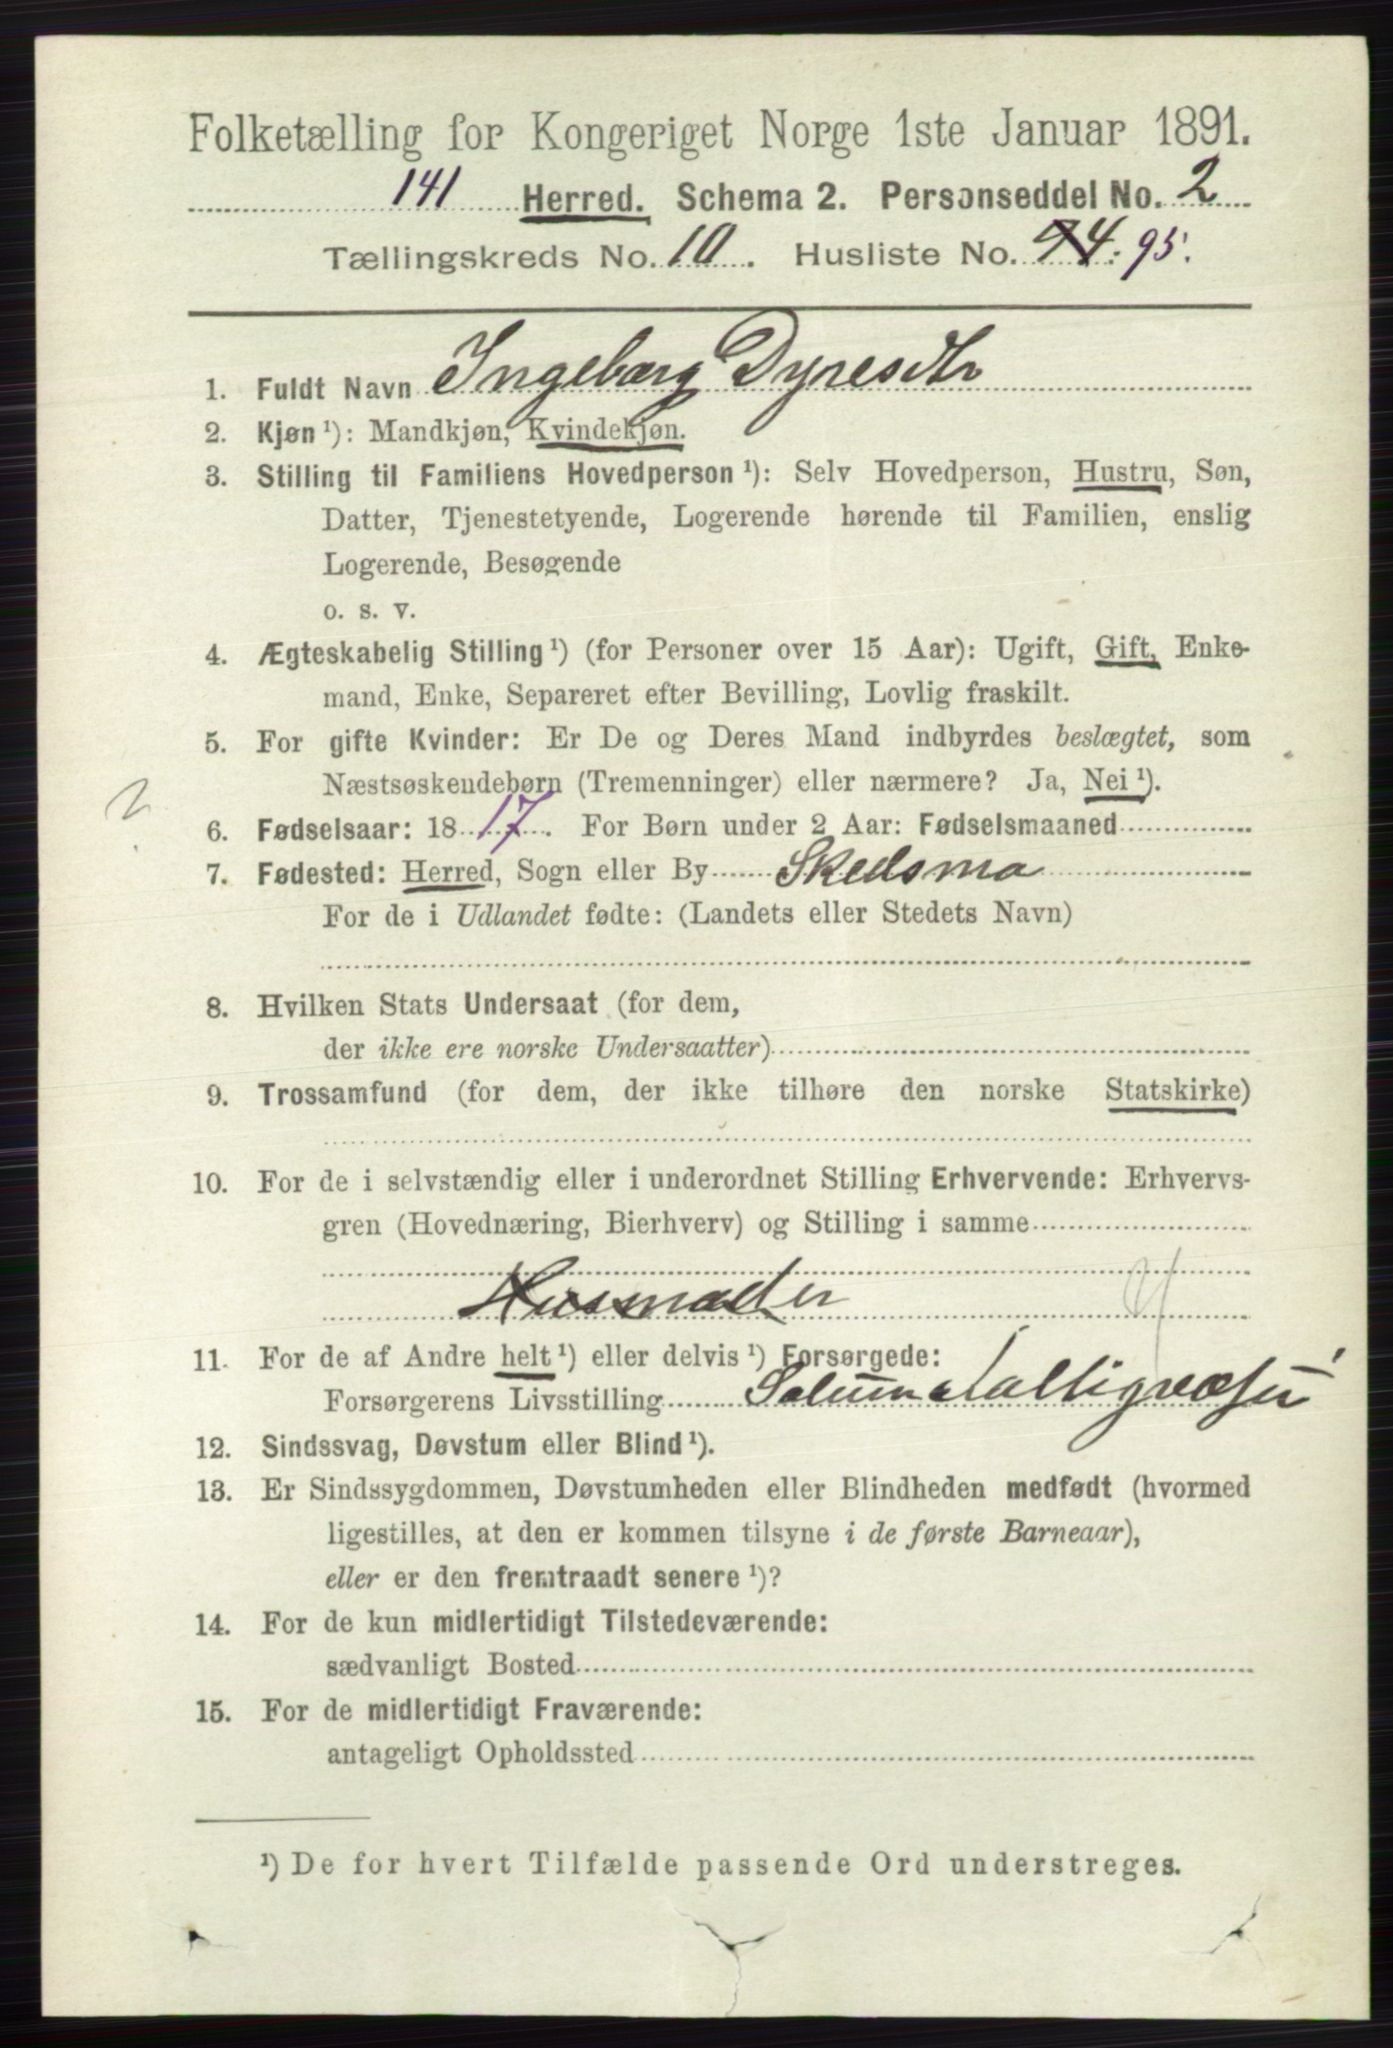 Folketælling for Kongeriget Norge 1ste Januar 1891.
141 Herred. Schema 2. Personseddel No. 2
Tællingskreds No. 10. Husliste No. 94: 95.
1. Fuldt Navn Ingeborg Dyresdtr
2. Kjøn ¹): Mandkjøn, Kvindekjøn.
3. Stilling til Familiens Hovedperson ¹): Selv Hovedperson, Hustru, Søn,
Datter, Tjenestetyende, Logerende hørende til Familien, enslig
Logerende, Besøgende
o. s. v.
4. Ægteskabelig Stilling ¹) (for Personer over 15 Aar): Ugift, Gift, Enke-
mand, Enke, Separeret efter Bevilling, Lovlig fraskilt.
5. For gifte Kvinder: Er De og Deres Mand indbyrdes beslægtet, som
Næstsøskendebørn (Tremenninger) eller nærmere? Ja, Nei ¹).
2
6. Fødselsaar: 1817. For Børn under 2 Aar: Fødselsmaaned
7. Fødested: Herred, Sogn eller By Skedsmo
For de i Udlandet fødte: (Landets eller Stedets Navn)
8. Hvilken Stats Undersaat (for dem,
der ikke ere norske Undersaatter)
9. Trossamfund (for dem, der ikke tilhøre den norske Statskirke)
10. For de i selvstændig eller i underordnet Stilling Erhvervende: Erhvervs-
gren (Hovednæring, Bierhverv) og Stilling i samme
Husmoder
11. For de af Andre helt ¹) eller delvis ¹) Forsørgede:
Forsørgerens Livsstilling
12. Sindssvag, Døvstum eller Blind ¹).
13. Er Sindssygdommen, Døvstumheden eller Blindheden medfødt (hvormed
ligestilles, at den er kommen tilsyne i de første Barneaar),
eller er den fremtraadt senere ¹)?
14. For de kun midlertidigt Tilstedeværende:
sædvanligt Bosted
15. For de midlertidigt Fraværende:
antageligt Opholdssted
¹) De for hvert Tilfælde passende Ord understreges.